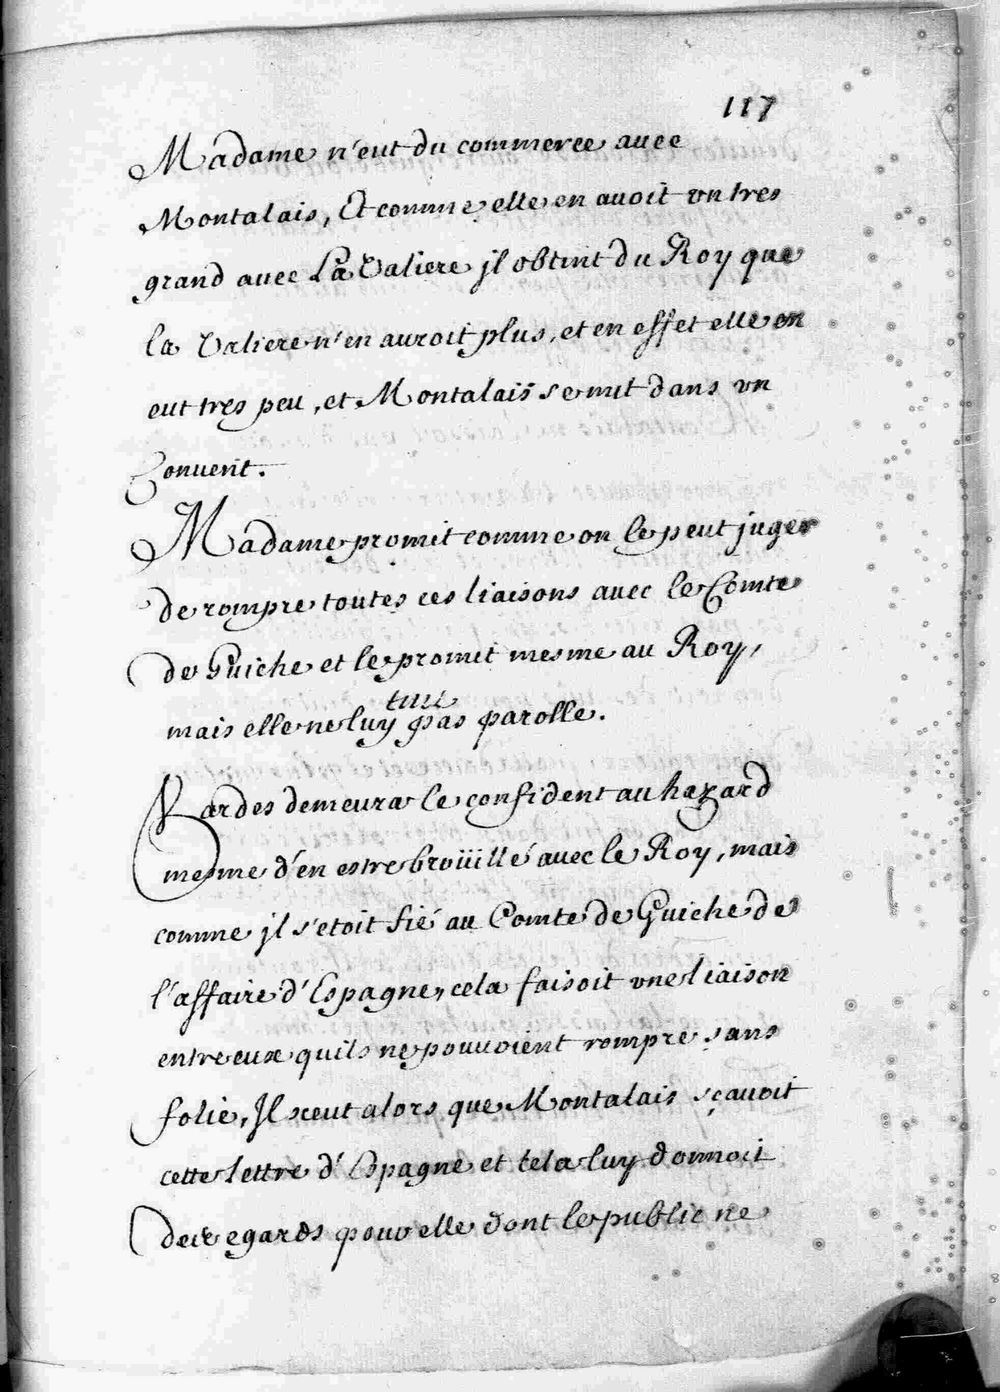 117
Madame n'eut du commerce avec
Montalais, Et comme elle en avoit vn tres
grand avec La Valiere jl obtint du Roy que
la Valiere n'en auroit plus, et en effet elle en
eut tres peu, et Montalais se mit dans vn
Convent.
Madame promit comme on le peut juger
de rompre toutes ces liaisons avec le Comte
de Guiche et le promit mesme au Roy,
mais elle ne luy tint pas parolle.
Vardes demeura le confident au hazard
mesme d'en estre broüillé avec le Roy, mais
comme jl s'etoit fié au Comte de Guiche de
l'affaire d'Espagne, cela faisoit vne liaison
entre eux quils ne pouvoient rompre sans
folie, Jl sceut alors que Montalais sçavoit
cette lettre d'Espagne et cela luy donnoit
des egards pour elle dont le public ne